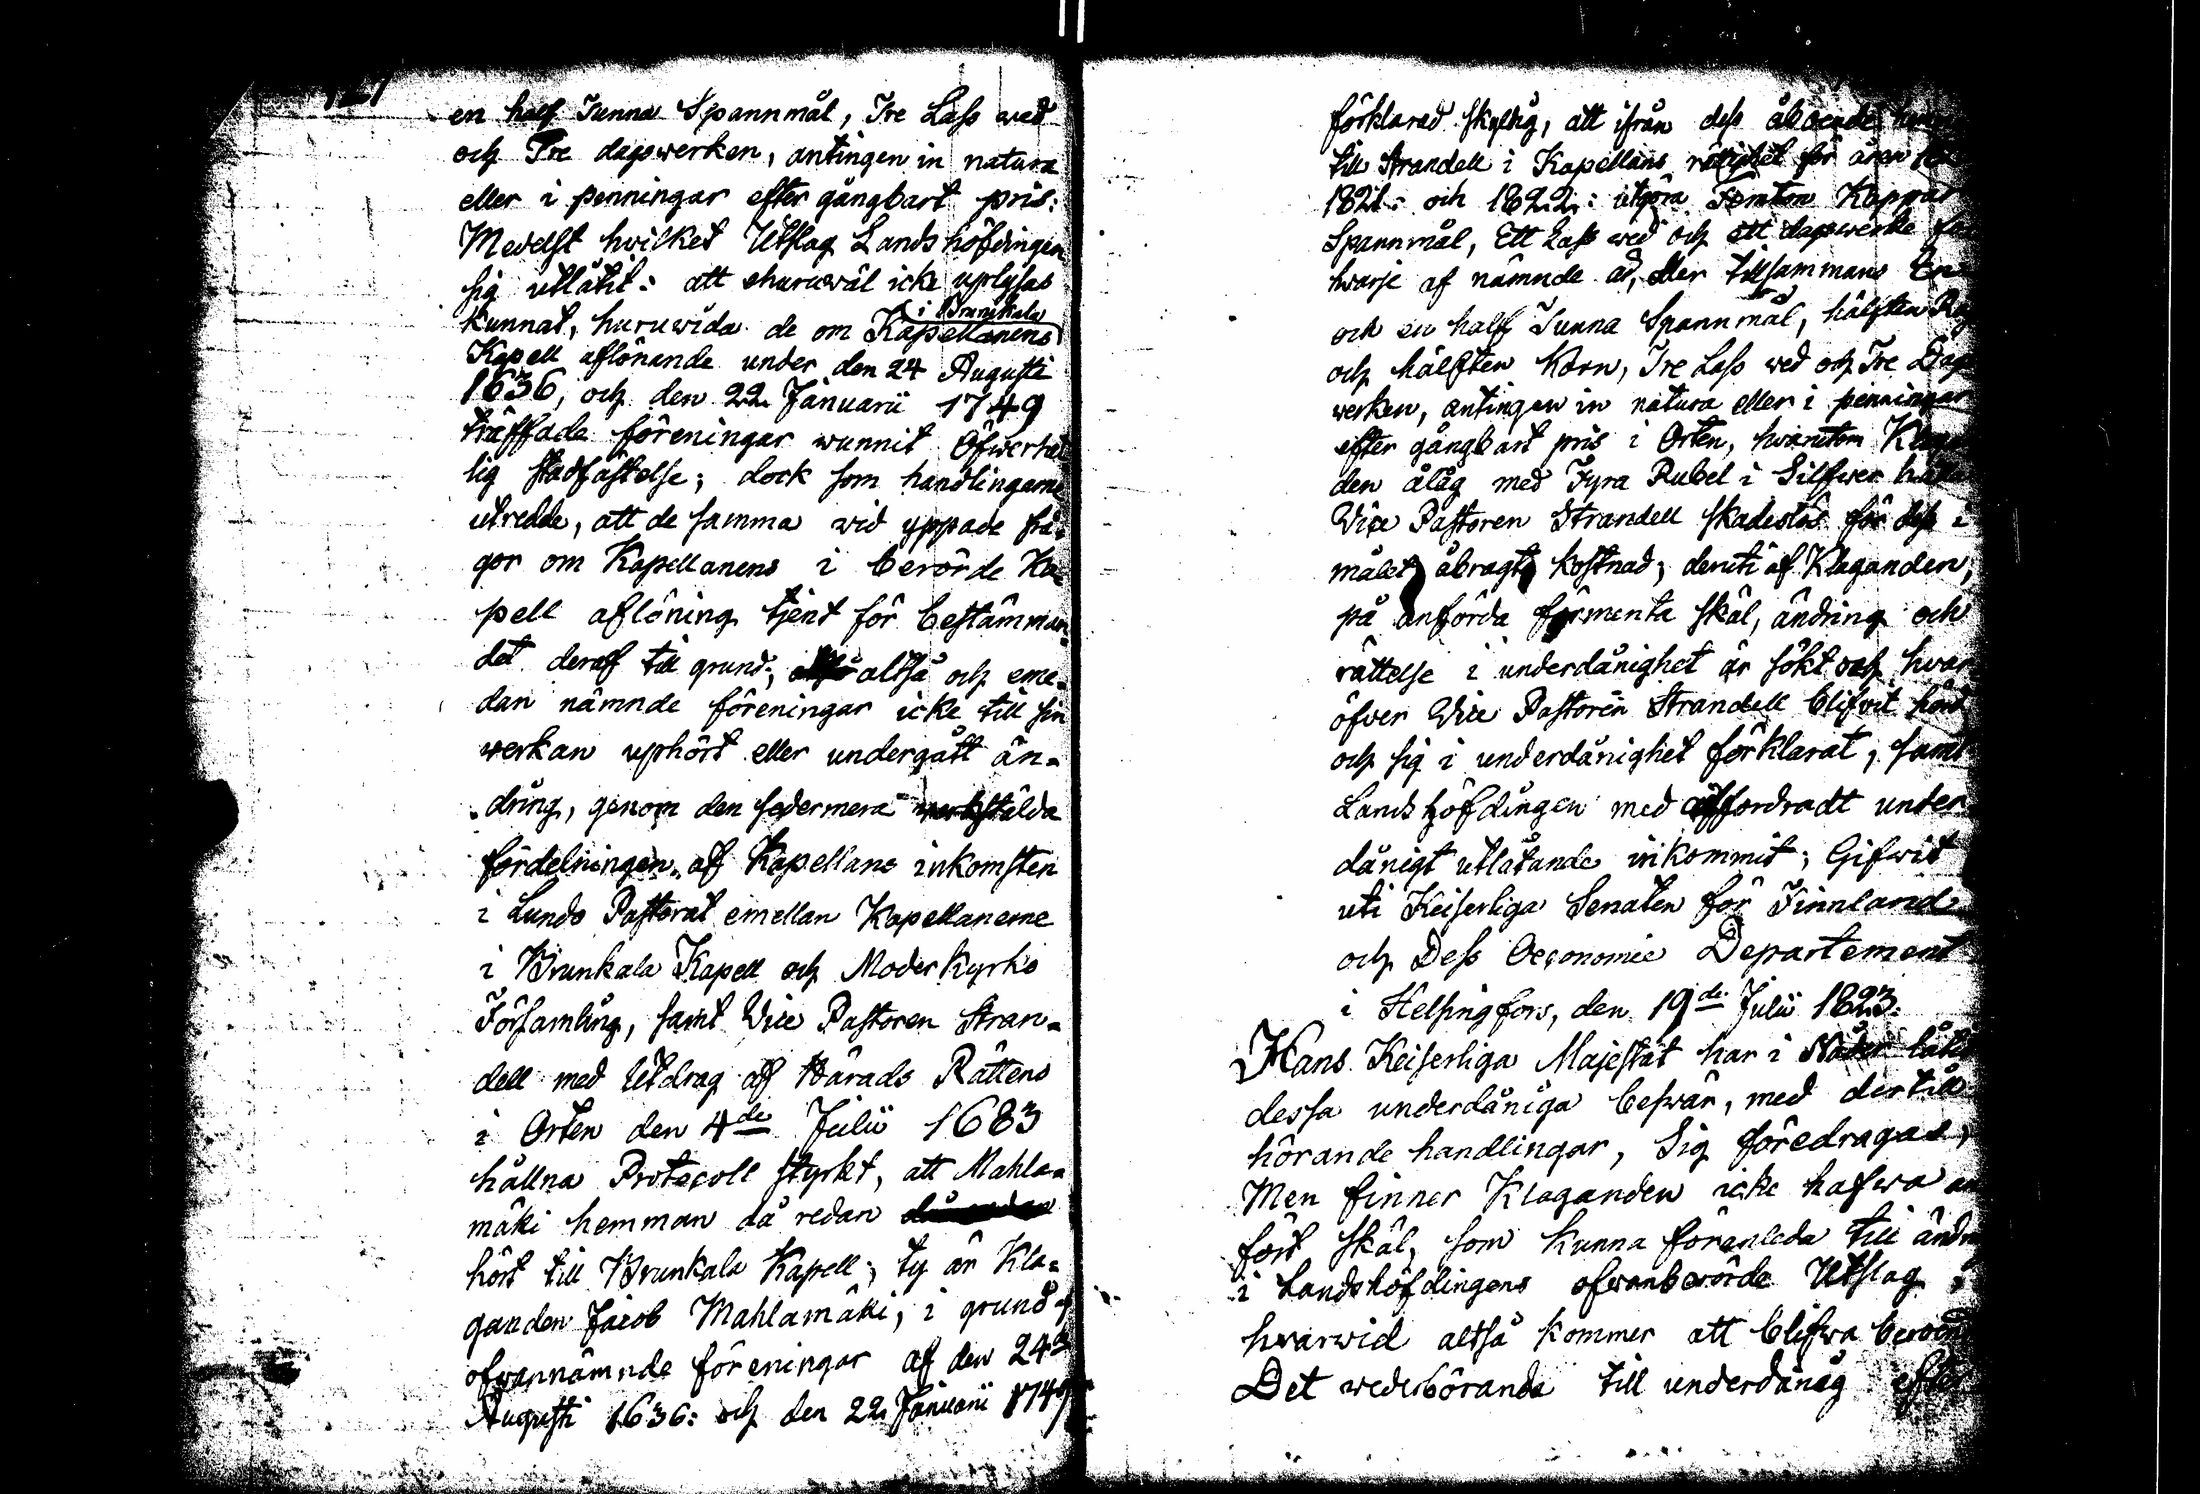 en half Tunna Spannmål, Tre Lass wed
och Tre dagswerken, antingen in natura
eller i penningar efter gångbart pris:
Medelst hvilket Utslag Landshöfdingen
sig utlåtit: att ehuruwäl icke uplysas
i Brunkala
kunnat, huruwida de om Kapellanens
Kapell aflönande under den 24 Augusti
1636, och den 22 Januarii 1749
träffade föreningar wunnit Öfwerhet
lig stadfästelse; dock som handlingarne
utredde, att de samma wid yppade frå-
gor om Kapellanens i berörde Ka-
pell aflöning tjent för bestämman-
det deraf till grund; altså och eme-
dan nämnde föreningar icke till sin
werkan uphört eller undergått än-
dring, genom den sedermera werkstälda
fördelningen af Kapellans inkomsten
i Lundo Pastorat emellan Kapellanerne
i Brunkala Kapell och Moderkyrko
Församling, samt Vice Pastoren Stran-
dell med Utdrag af Härads Rättens
i Orten den 4de Julii 1683
hållna Protocoll styrkt, att Mahla-
mäki hemman då redan
hört till Brunkala Kapell; ty är Kla-
ganden Jacob Mahlamäki, i grund af
ofwannämnde föreningar af den 24
Augusti 1636: och den 22 Januarii 1749
förklarad skyldig, att ifrån dess åboende
till Strandell i Kapellans rättighet för åren
1821: och 1822: utgöra Femton Kappar
Spannmål, Ett Lass wed och ett dagswerke för
hwarje af nämnde år, eller tillsammans En
och en half Tunna Spannmål, hälften
och hälften Korn, Tre Lass wed och Tre Dags
werken, antingen in natura eller i penningar
efter gångbart pris i Orten, hwarutom Klagan
den ålåg med Fyra Rubel i Silfwer hålla
Vice Pastoren Strandell skadeslös för dess i
målet åbragte kostnad; deruti af Klaganden,
på anförda förmenta skäl, ändring och
rättelse i underdånighet är sökt och hwar
öfwer Vice Pastoren Strandell blifvit hörd
och sig i underdånighet förklarat, samt
Landshöfdingen med affordradt under
dånigt utlåtande inkommit; Gifwit
uti Keiserliga Senaten för Finnland
och Dess Oeconomie Departement
i Helsingfors, den 19de Julii 1823.
Hans Keiserliga Majestät har i Nåder låtit
dessa underdåniga beswär, med dertill
hörande handlingar, Sig föredragas,
Men finner Klaganden icke hafwa an
fört skäl, som kunna föranleda till ändring
i Landshöfdingens ofwanberörde Utslag
hwarwid altså kommer att blifwa beroende
Det wederbörande till underdånig efter